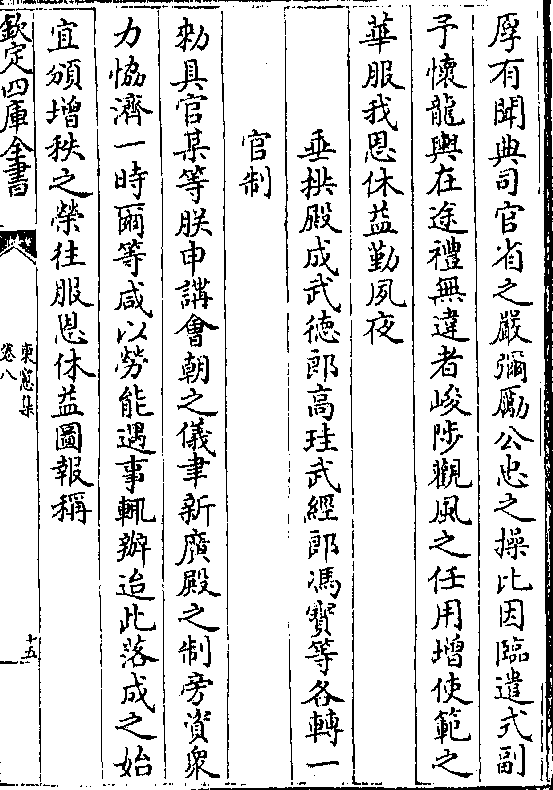 厚有聞典司官省之嚴彌勵公忠之操比因臨遣式副
予懷龍輿在途禮無違者峻陟觀風之任用増使範之
華服我恩休益勤夙夜
垂拱殿成武徳郎高珪武經郎馮寳等各轉一
官制
勅具官某等朕申講會朝之儀聿新廣殿之制旁資衆
力恊濟一時爾等咸以勞能遇事輒辦迨此落成之始
宜頒增秩之榮往服恩休益圖報稱
欽定四庫全書
東窻集
卷八
十五